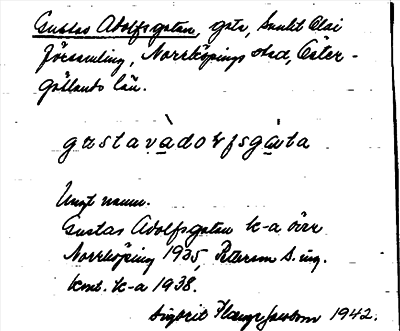 Gustav Adolfsgatan, gata, Sankt Olai
församling, Norrköpings stad, Öster-
götlands län.
gustavàdolfsgàta
Ungt namn.
Gustav Adolfsgatan k-a över
Norrköping 1935, Petersson S. ing.
komb. k-a 1938.
Sigbrit Jacobson 1942.